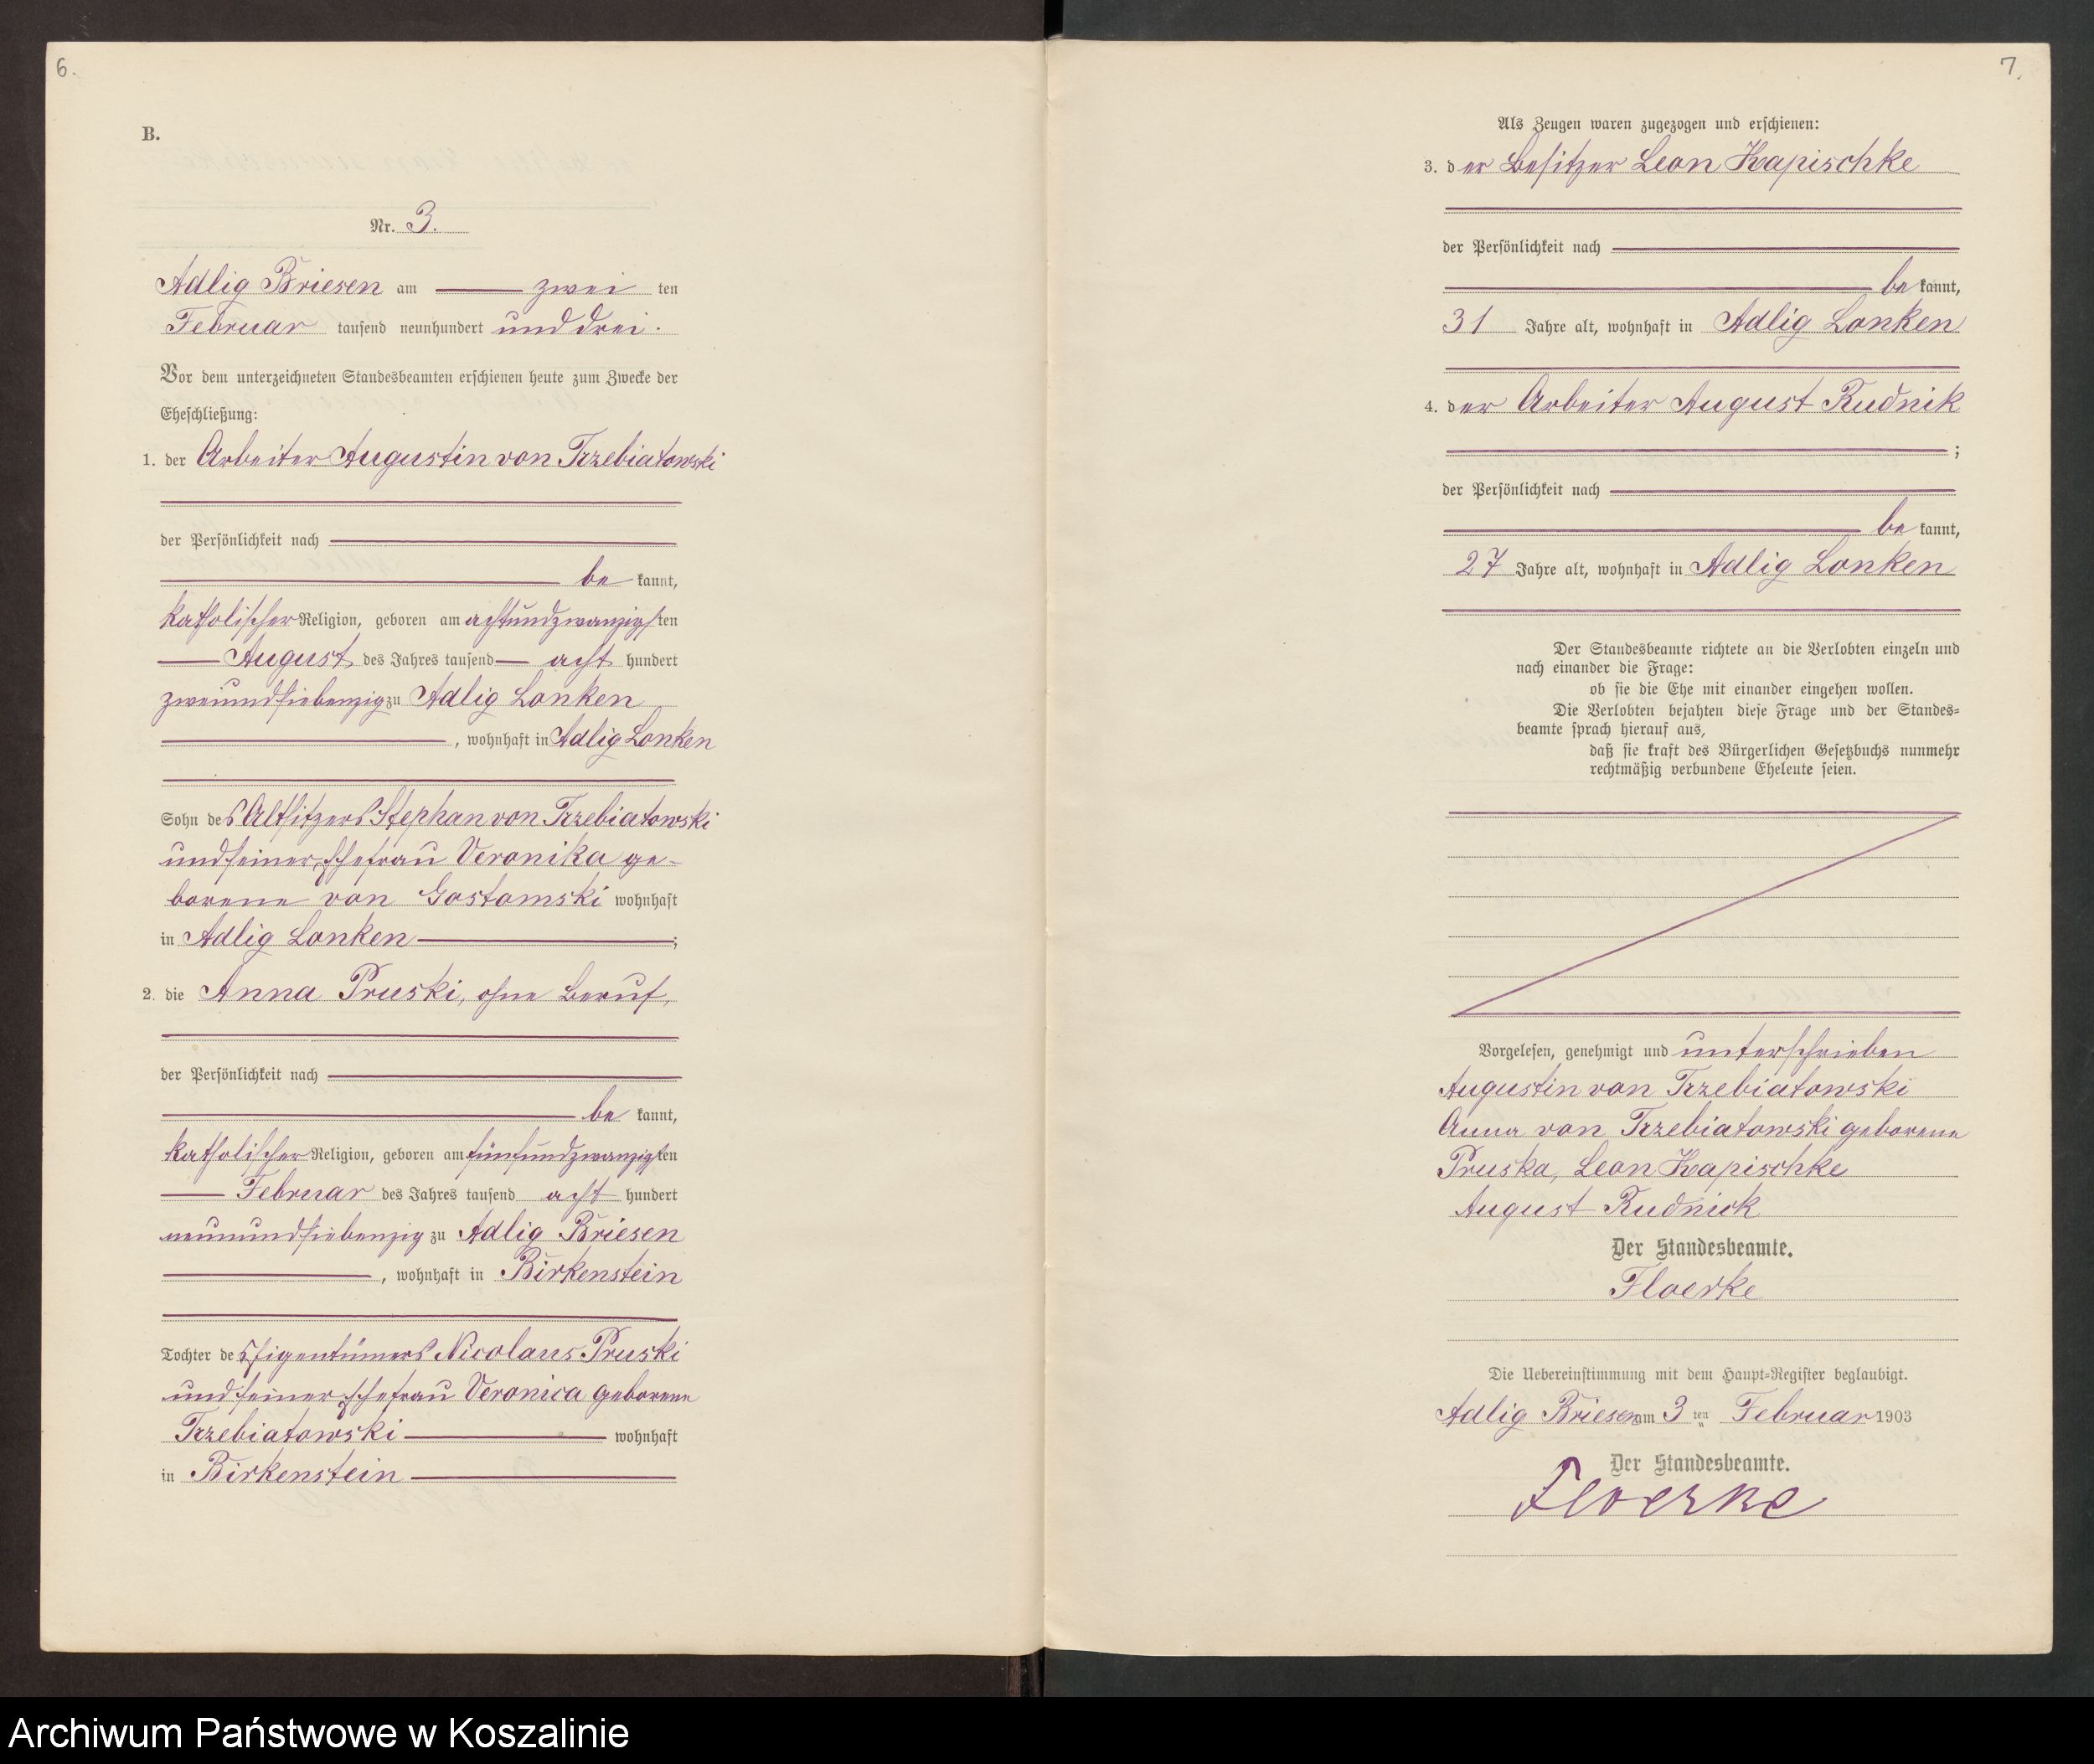 6.
B.
Nr. 3.
Adlig Briesen am zwei ten
Februar tausend neunhundert und drei.
Vor dem unterzeichneten Standesbeamten erschienen heute zum Zwecke der
Eheschließung:
1. der Arbeiter Augustin von Trzebiatowski
der Persönlichkeit nach
be kannt,
katholischer Religion, geboren am achtundzwanzigsten
August des Jahres tausend acht hundert
zweiundsiebenzig zu Adlig Lonken
, wohnhaft in Adlig Lonken
Sohn des Altsitzers Stephan von Trzebiatowski
und seiner Ehefrau Veronika ge-
borene von Gostomski wohnhaft
in Adlig Lonken ;
2. die Anna Pruski, ohne Beruf,
der Persönlichkeit nach
be kannt,
katholischer Religion, geboren am fünfundzwanzigsten
Februar des Jahres tausend acht hundert
neunundsiebenzig zu Adlig Briesen
, wohnhaft in Birkenstein
Tochter des Eigentümers Nicolaus Pruski
und seiner Ehefrau Veronica geborene
Trzebiatowski wohnhaft
in Birkenstein
7.
Als Zeugen waren zugezogen und erschienen:
3. der Besitzer Leon Kapischke
der Persönlichkeit nach
be kannt,
31 Jahre alt, wohnhaft in Adlig Lonken
4. der Arbeiter August Rudnik
;
der Persönlichkeit nach
be kannt,
27 Jahre alt, wohnhaft in Adlig Lonken
Der Standesbeamte richtete an die Verlobten einzeln und
nach einander die Frage:
ob sie die Ehe mit einander eingehen wollen.
Die Verlobten bejahten diese Frage und der Standes=
beamte sprach hierauf aus,
daß sie kraft des Bürgerlichen Gesetzbuchs nunmehr
rechtmäßig verbundene Eheleute seien.
Vorgelesen, genehmigt und unterschrieben
Augustin von Trzebiatowski
Anna von Trzebiatowski geborene
Pruska, Leon Kapischke
August Rudnick
Der Standesbeamte.
Floerke
Die Uebereinstimmung mit dem Haupt=Register beglaubigt.
Adlig Briesen am 3 ten Februar 1903
Der Standesbeamte.
Floerke
Archiwum Państwowe w Koszalinie